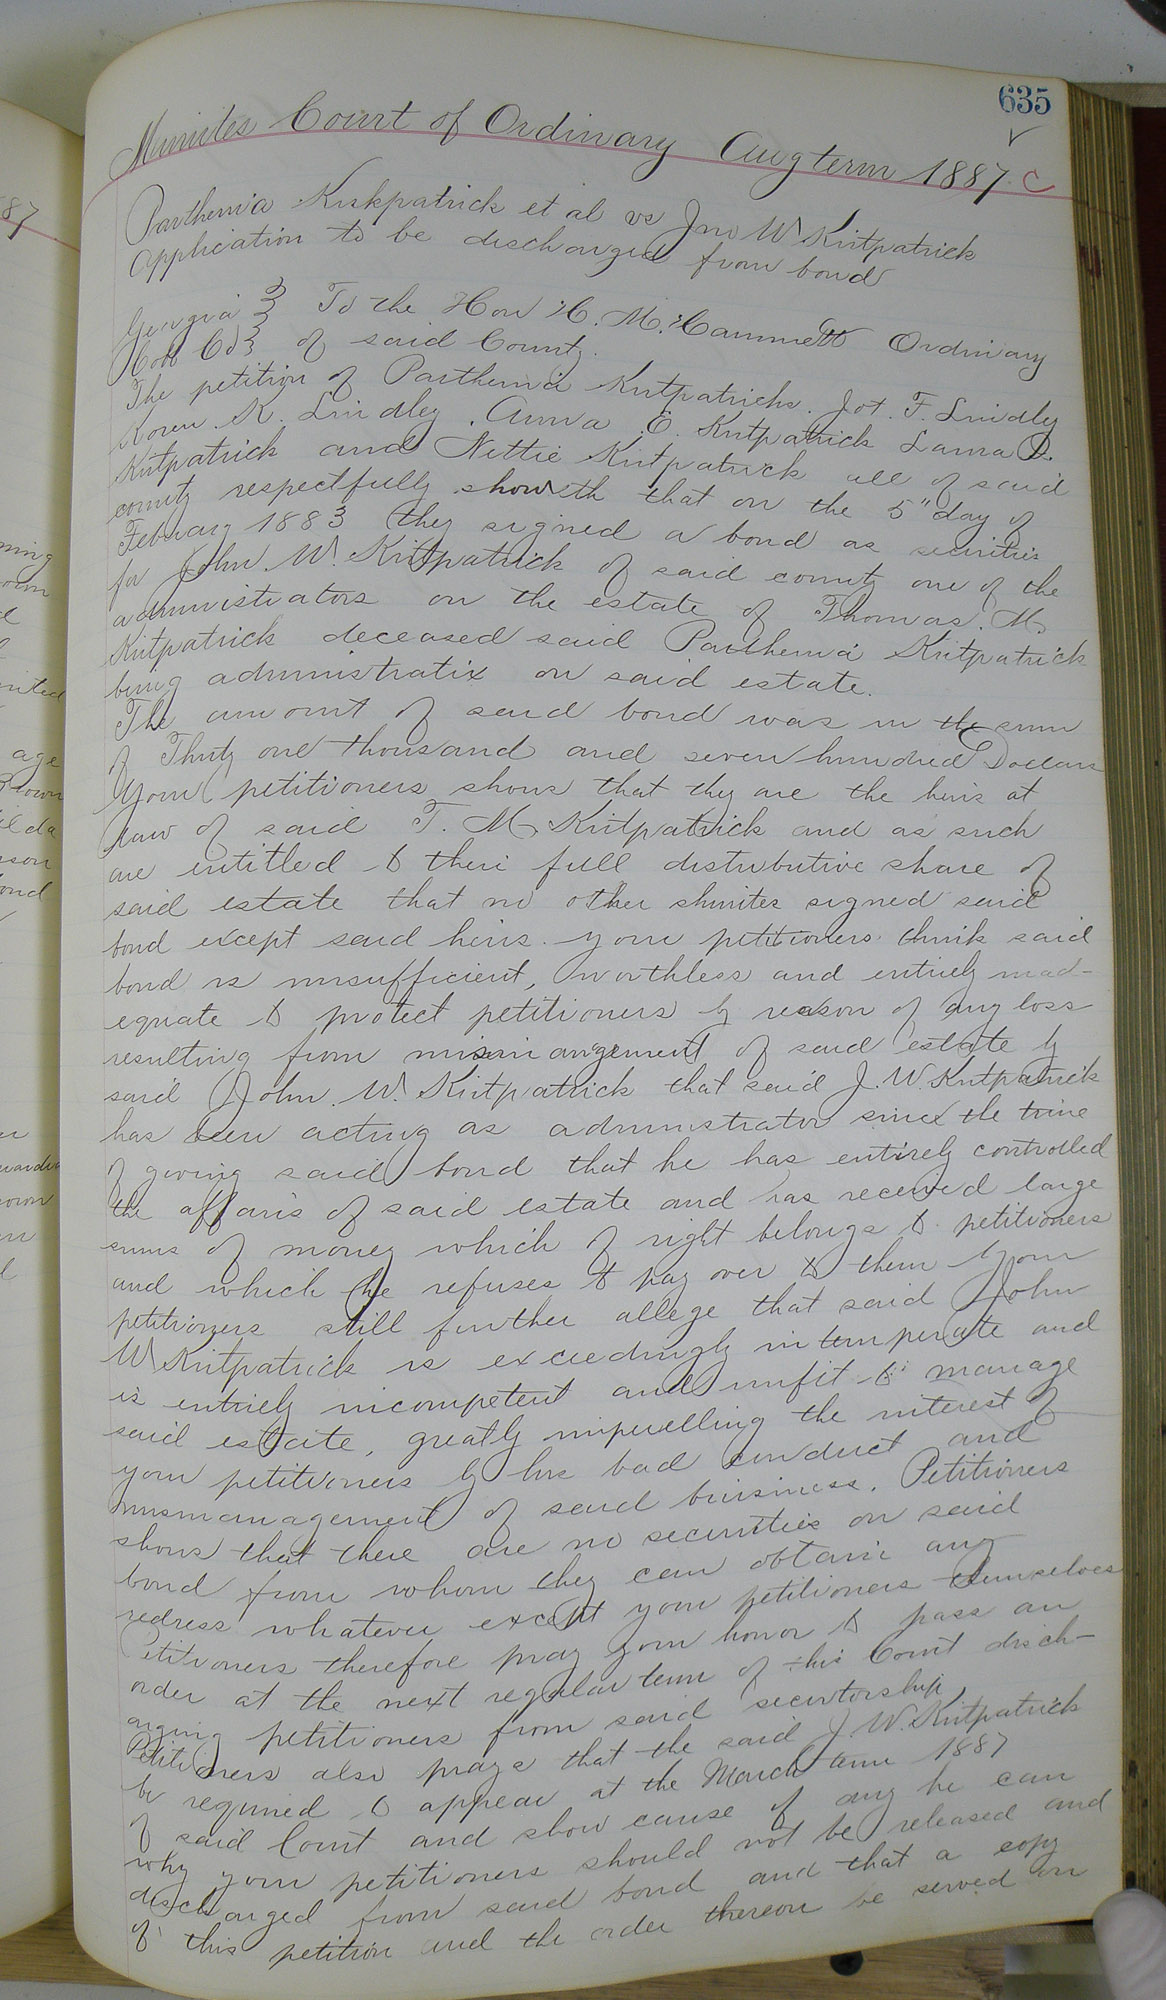 635
Minutes Court of Ordinary Aug term 1887
Parthenia Kirkpatrick et al vs Jno W Kirtpatrick
Application to be discharged from bond
Georgia } To the Hon H. M. Hammett Ordinary
Cobb Co } of said County.
The petition of Parthenia Kirtpatrick. Jot. F. Lindley
K. Lindley. Anna E. Kirtpatrick Laura D.
Kirtpatrick and Nettie Kirtpatrick all of said
county respectfully showeth that on the 5" day of
Febuary 1883 they signed a bond as securities
for John W. Kirtpatrick of said county one of the
administrators on the estate of Thomas. M.
Kirtpatrick deceased said Parthenia Kirtpatrick
being administratix on said estate.
The amount of said bond was in the sum
of Thirty one thousand and seven hundred Dollars
Your petitioners shows that they are the heirs at
law of said T. M. Kirtpatrick and as such
are entitled to their full distributive share of
said estate that no other signed said
bond except said heirs. your petitioners think said
bond is insufficient, worthless and entirely inad-
equate to protect petitioners by reason of any loss
resulting from of said estate by
said John. W. Kirtpatrick that said J. W. Kirtpatrick
has been acting as administrator since the time
of giving said bond that he has entirely controlled
the affairs of said estate and has received large
sums of money which of right belongs to petitioners
and which he refuses to pay over to them Your
petitioners still further allege that said John
W Kirtpatrick is exceedingly intemperate and
is entirely incompetent and unfit to manage
said estate, greatly the interest of
your petitioners by his bad conduct and
mismanagement of said business. Petitioners
shows that there are no securities on said
bond from whom they can obtain any
redress whatever except your petitioners themselves
Petitioners therefore pray your honor to pass an
order at the next regular term of this Court disch-
arging petitioners from said
Petitioners also prays that the said J. W. Kirtpatrick
be required to appear at the March 1887
of said Court and show cause if any he can
why your petitioners should not be released and
discharged from said bond and that a copy
of this petition and the order thereon be served on